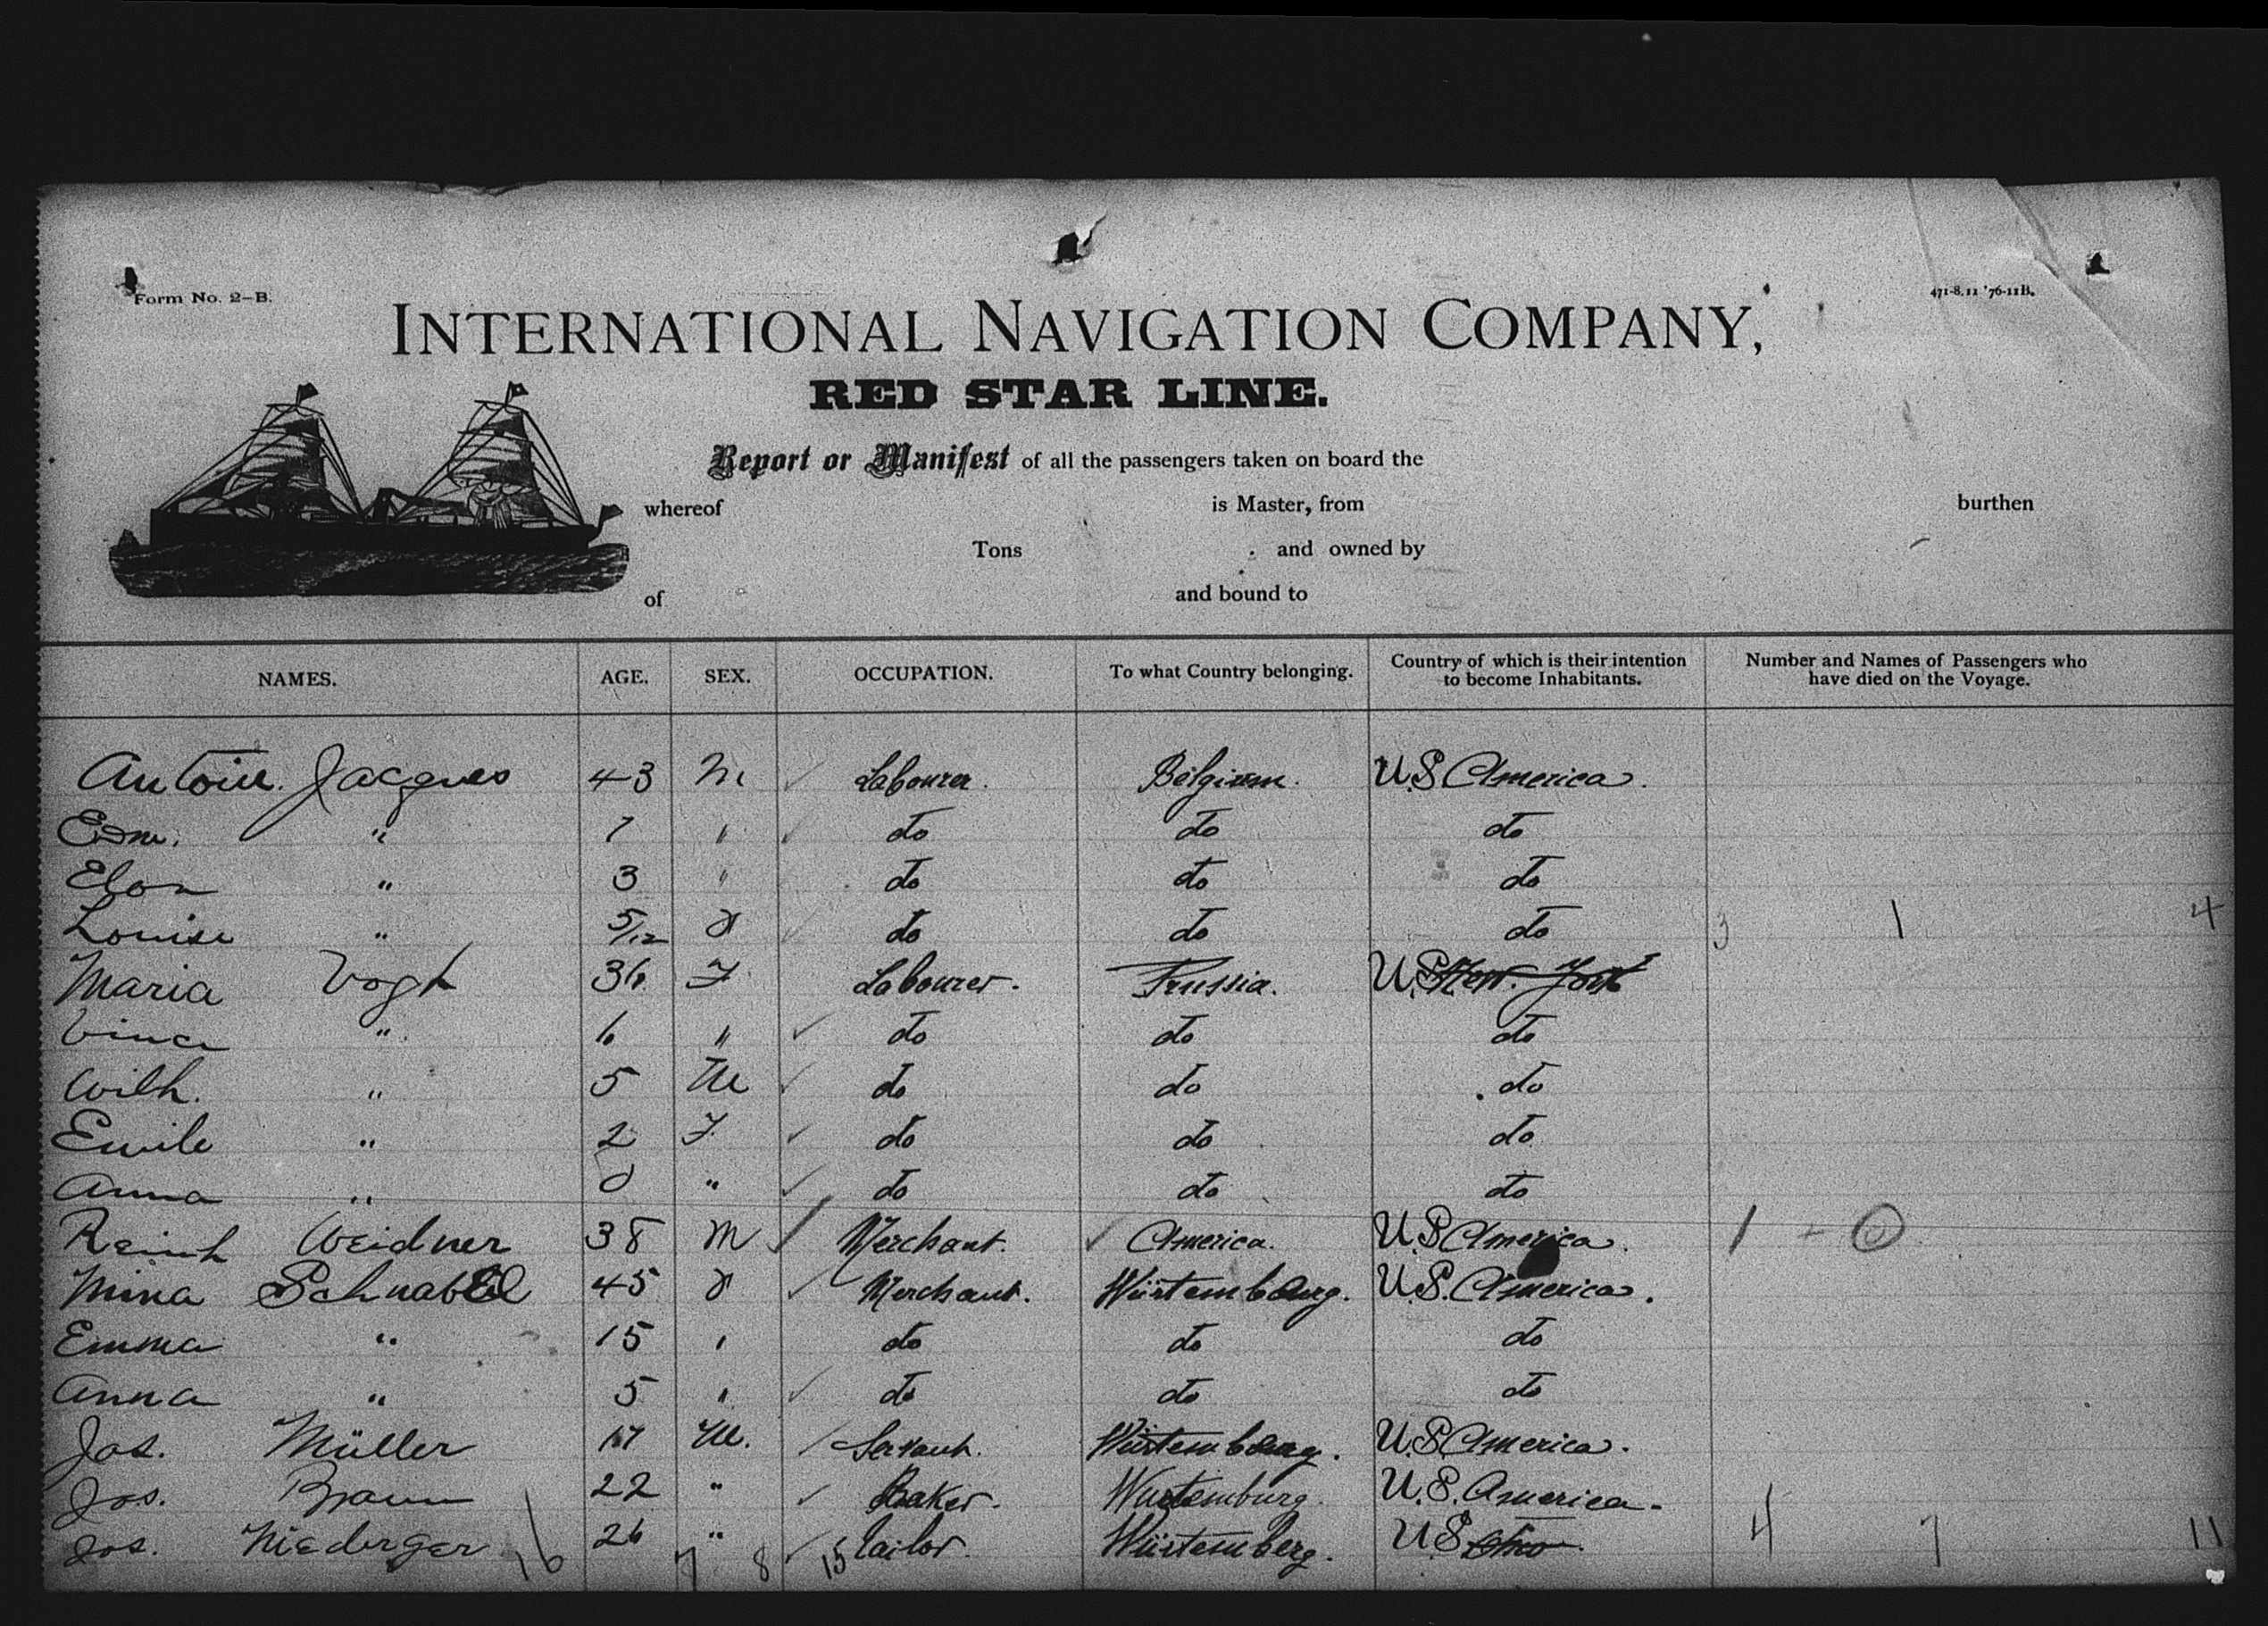 Form No. 2-B.
471-8.11 '76-11B.
INTERNATIONAL NAVIGATION COMPANY,
RED STAR LINE.
Report or Manifest of all the passengers taken on board the
whereof is Master, from burthen
Tons and owned by
of and bound to
NAMES. AGE. SEX. OCCUPATION. To what Country belonging. Country of which is their intention to become Inhabitants. Number and Names of Passengers who have died on the Voyage.
Jacques 43 M Labourer. Belgium. U.S America.
" 7 " do do do
" 3 " do do do
Louise " 5/12 do do do 3 1 4
Maria Vogt 36 F Labourer. Prussia. U.S New York
" 6 " do do do
Wilh. " 5 M do do do
Emile " 2 F. do do do
Anna " " do do do
Reinh Weidner 38 M Merchant. America. U.S America. 1 - 0
Mina Schnabel 45 Merchant. Würtemburg. U.S. America.
Emma " 15 " do do do
Anna " 5 " do do do
Jos. Müller 17 M. Servant. Würtemburg. U.S America.
Jos. Braun 22 " Baker. Wurtemburg. U.S. America.
Jos. Niederger 26 " Tailor. Würtemberg. U.S Ohio 4 7 11
16 7 8 15